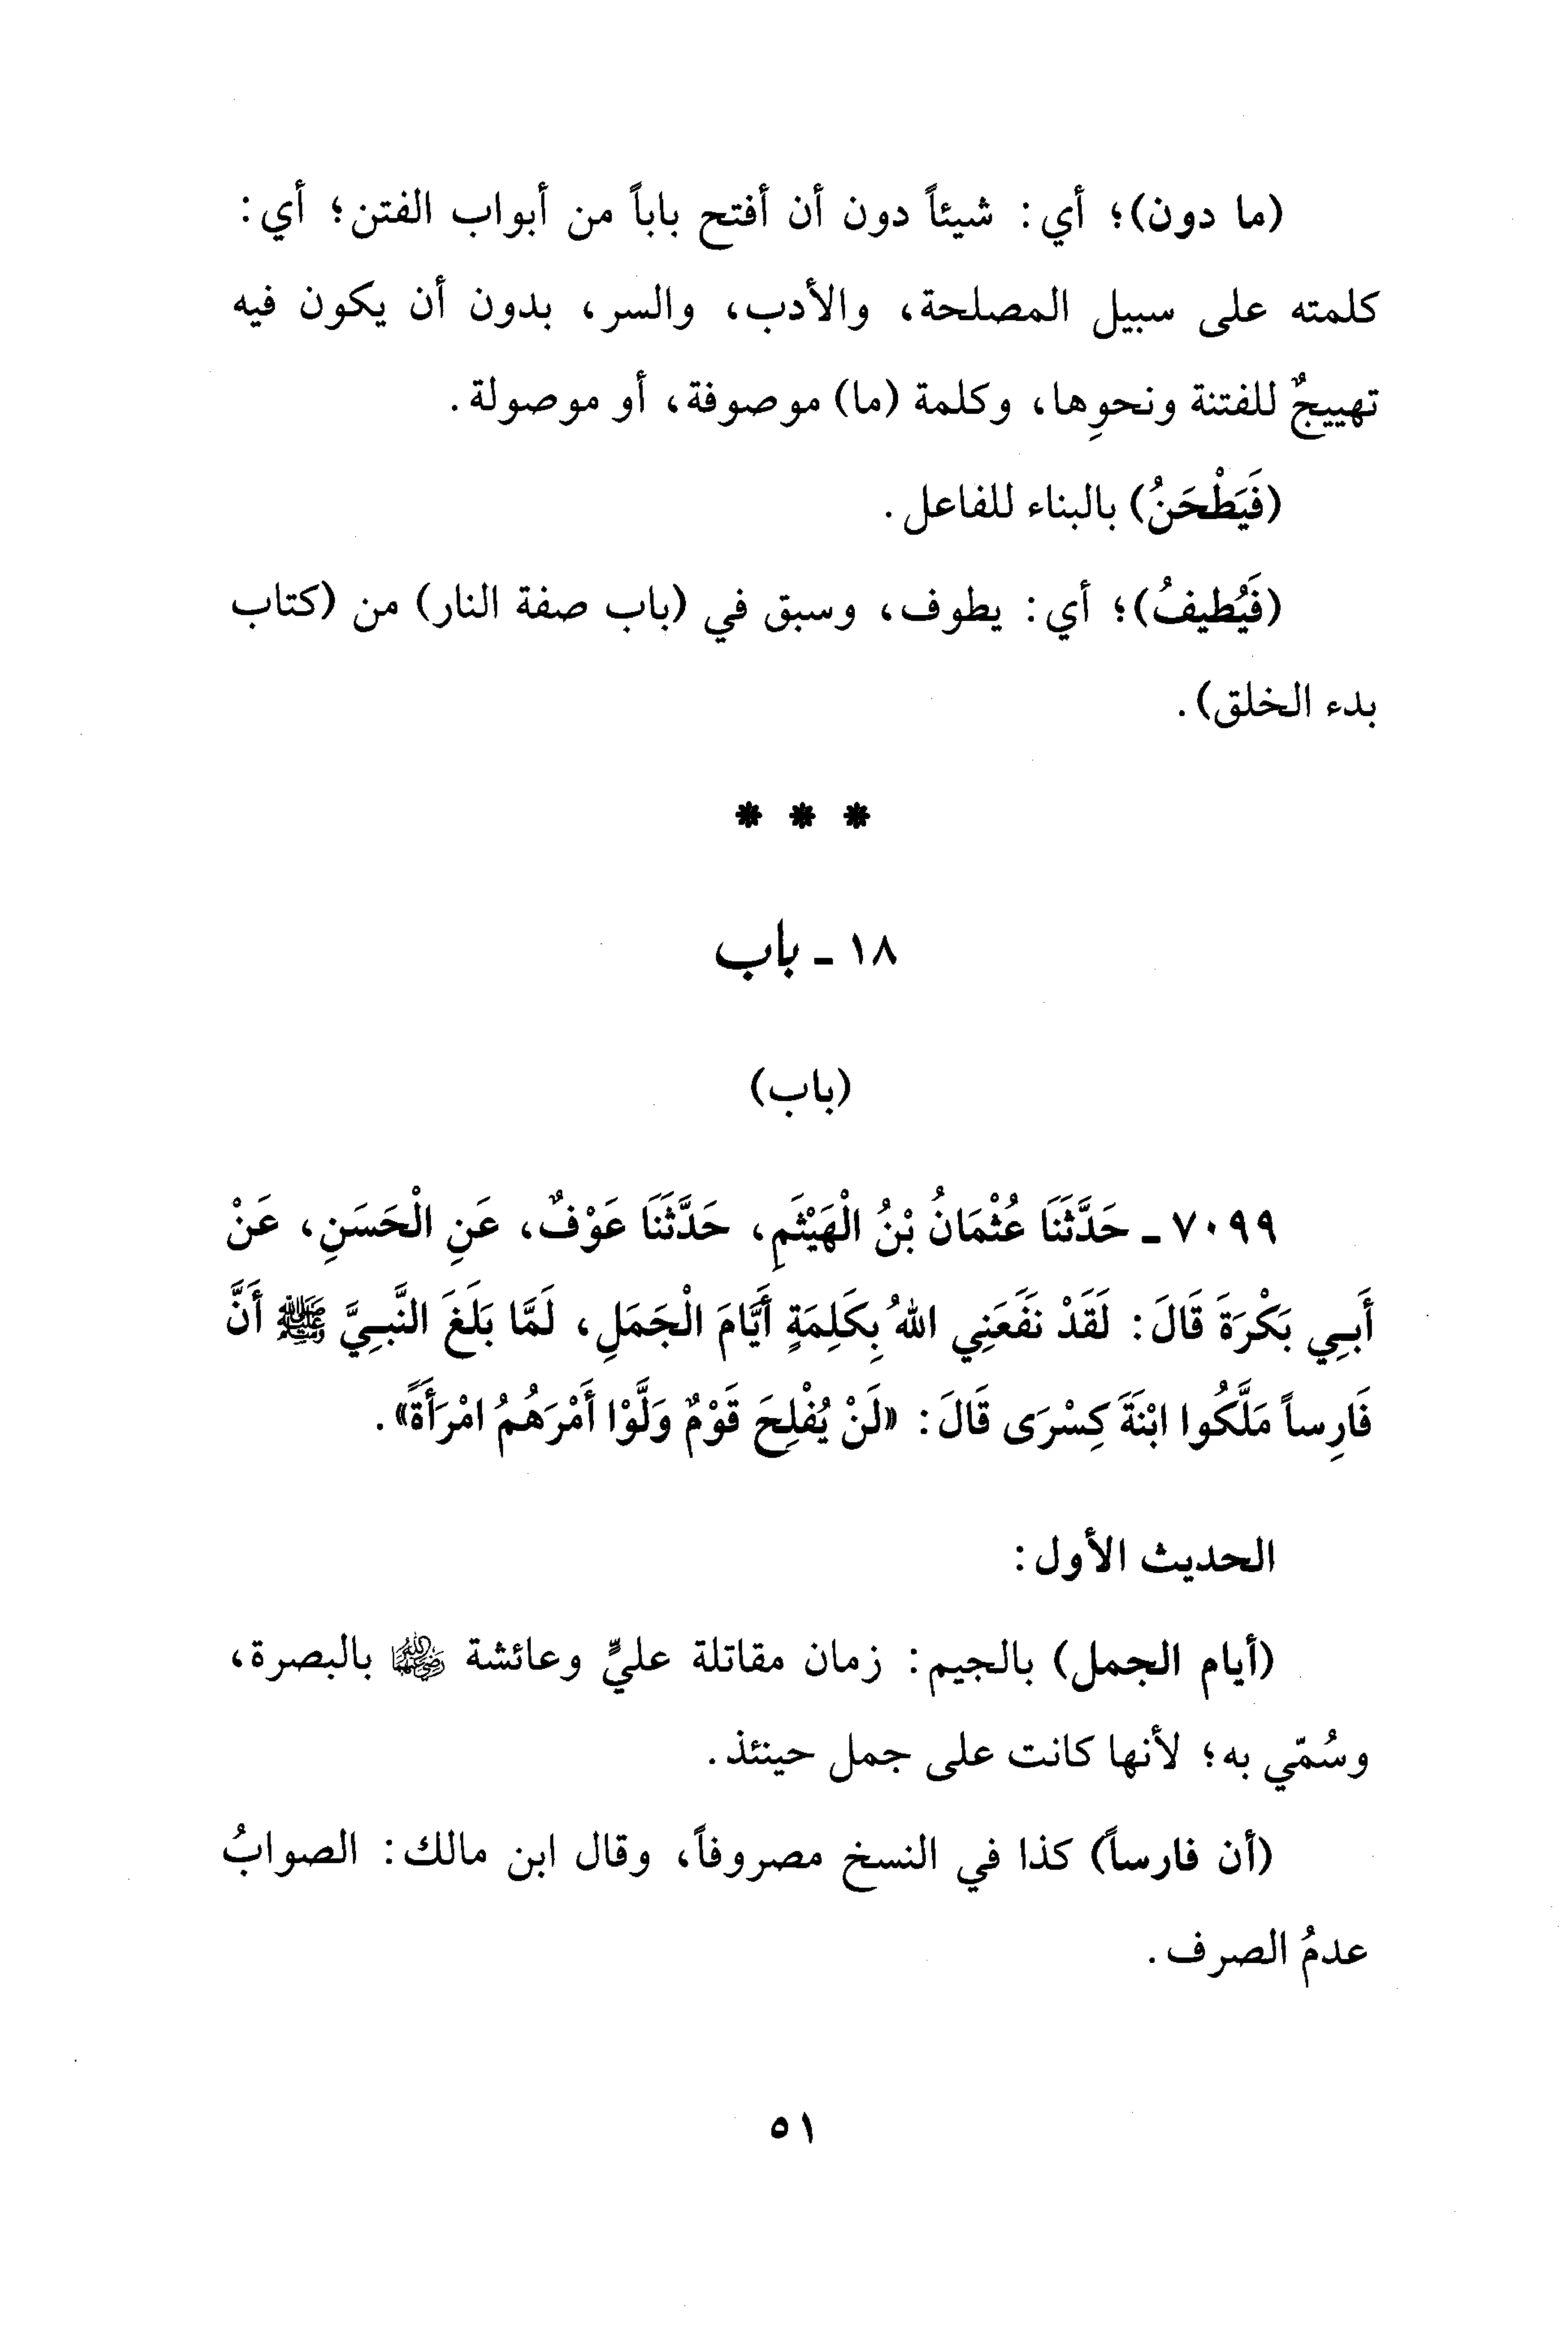 (ما دون)؛ أي: شيئاً دون أن أفتح باباً من أبواب الفتن؛ أي:
كلمته على سبيل المصلحة، والأدب، والسر، بدون أن يكون فيه
تهييجٌ للفتنة ونحوِها، وكلمة (ما) موصوفة، أو موصولة.
(فَيَطْحَنُ) بالبناء للفاعل.
(فَيُطيفُ)؛ أي: يطوف، وسبق في (باب صفة النار) من (كتاب
بدء الخلق).
* * *
١٨ - باب
(باب)
٧٠٩٩ - حَدَّثَنَا عُثْمَانُ بْنُ الْهَيْثَمِ، حَدَّثَنَا عَوْفٌ، عَنِ الْحَسَنِ، عَنْ
أَبِي بَكْرَةَ قَالَ: لَقَدْ نَفَعَنِي اللهُ بِكَلِمَةٍ أَيَّامَ الْجَمَلِ، لَمَّا بَلَغَ النَّبِيَّ ﷺ أَنَّ
فَارِساً مَلَّكُوا ابْنَةَ كِسْرَى قَالَ: «لَنْ يُفْلِحَ قَوْمٌ وَلَّوْا أَمْرَهُمُ امْرَأَةً».
الحديث الأول:
(أيام الجمل) بالجيم: زمان مقاتلة عليٍّ وعائشة رضي الله عنهما بالبصرة،
وسُمّي به؛ لأنها كانت على جمل حينئذ.
(أن فارساً) كذا في النسخ مصروفاً، وقال ابن مالك: الصوابُ
عدمُ الصرف.
٥١